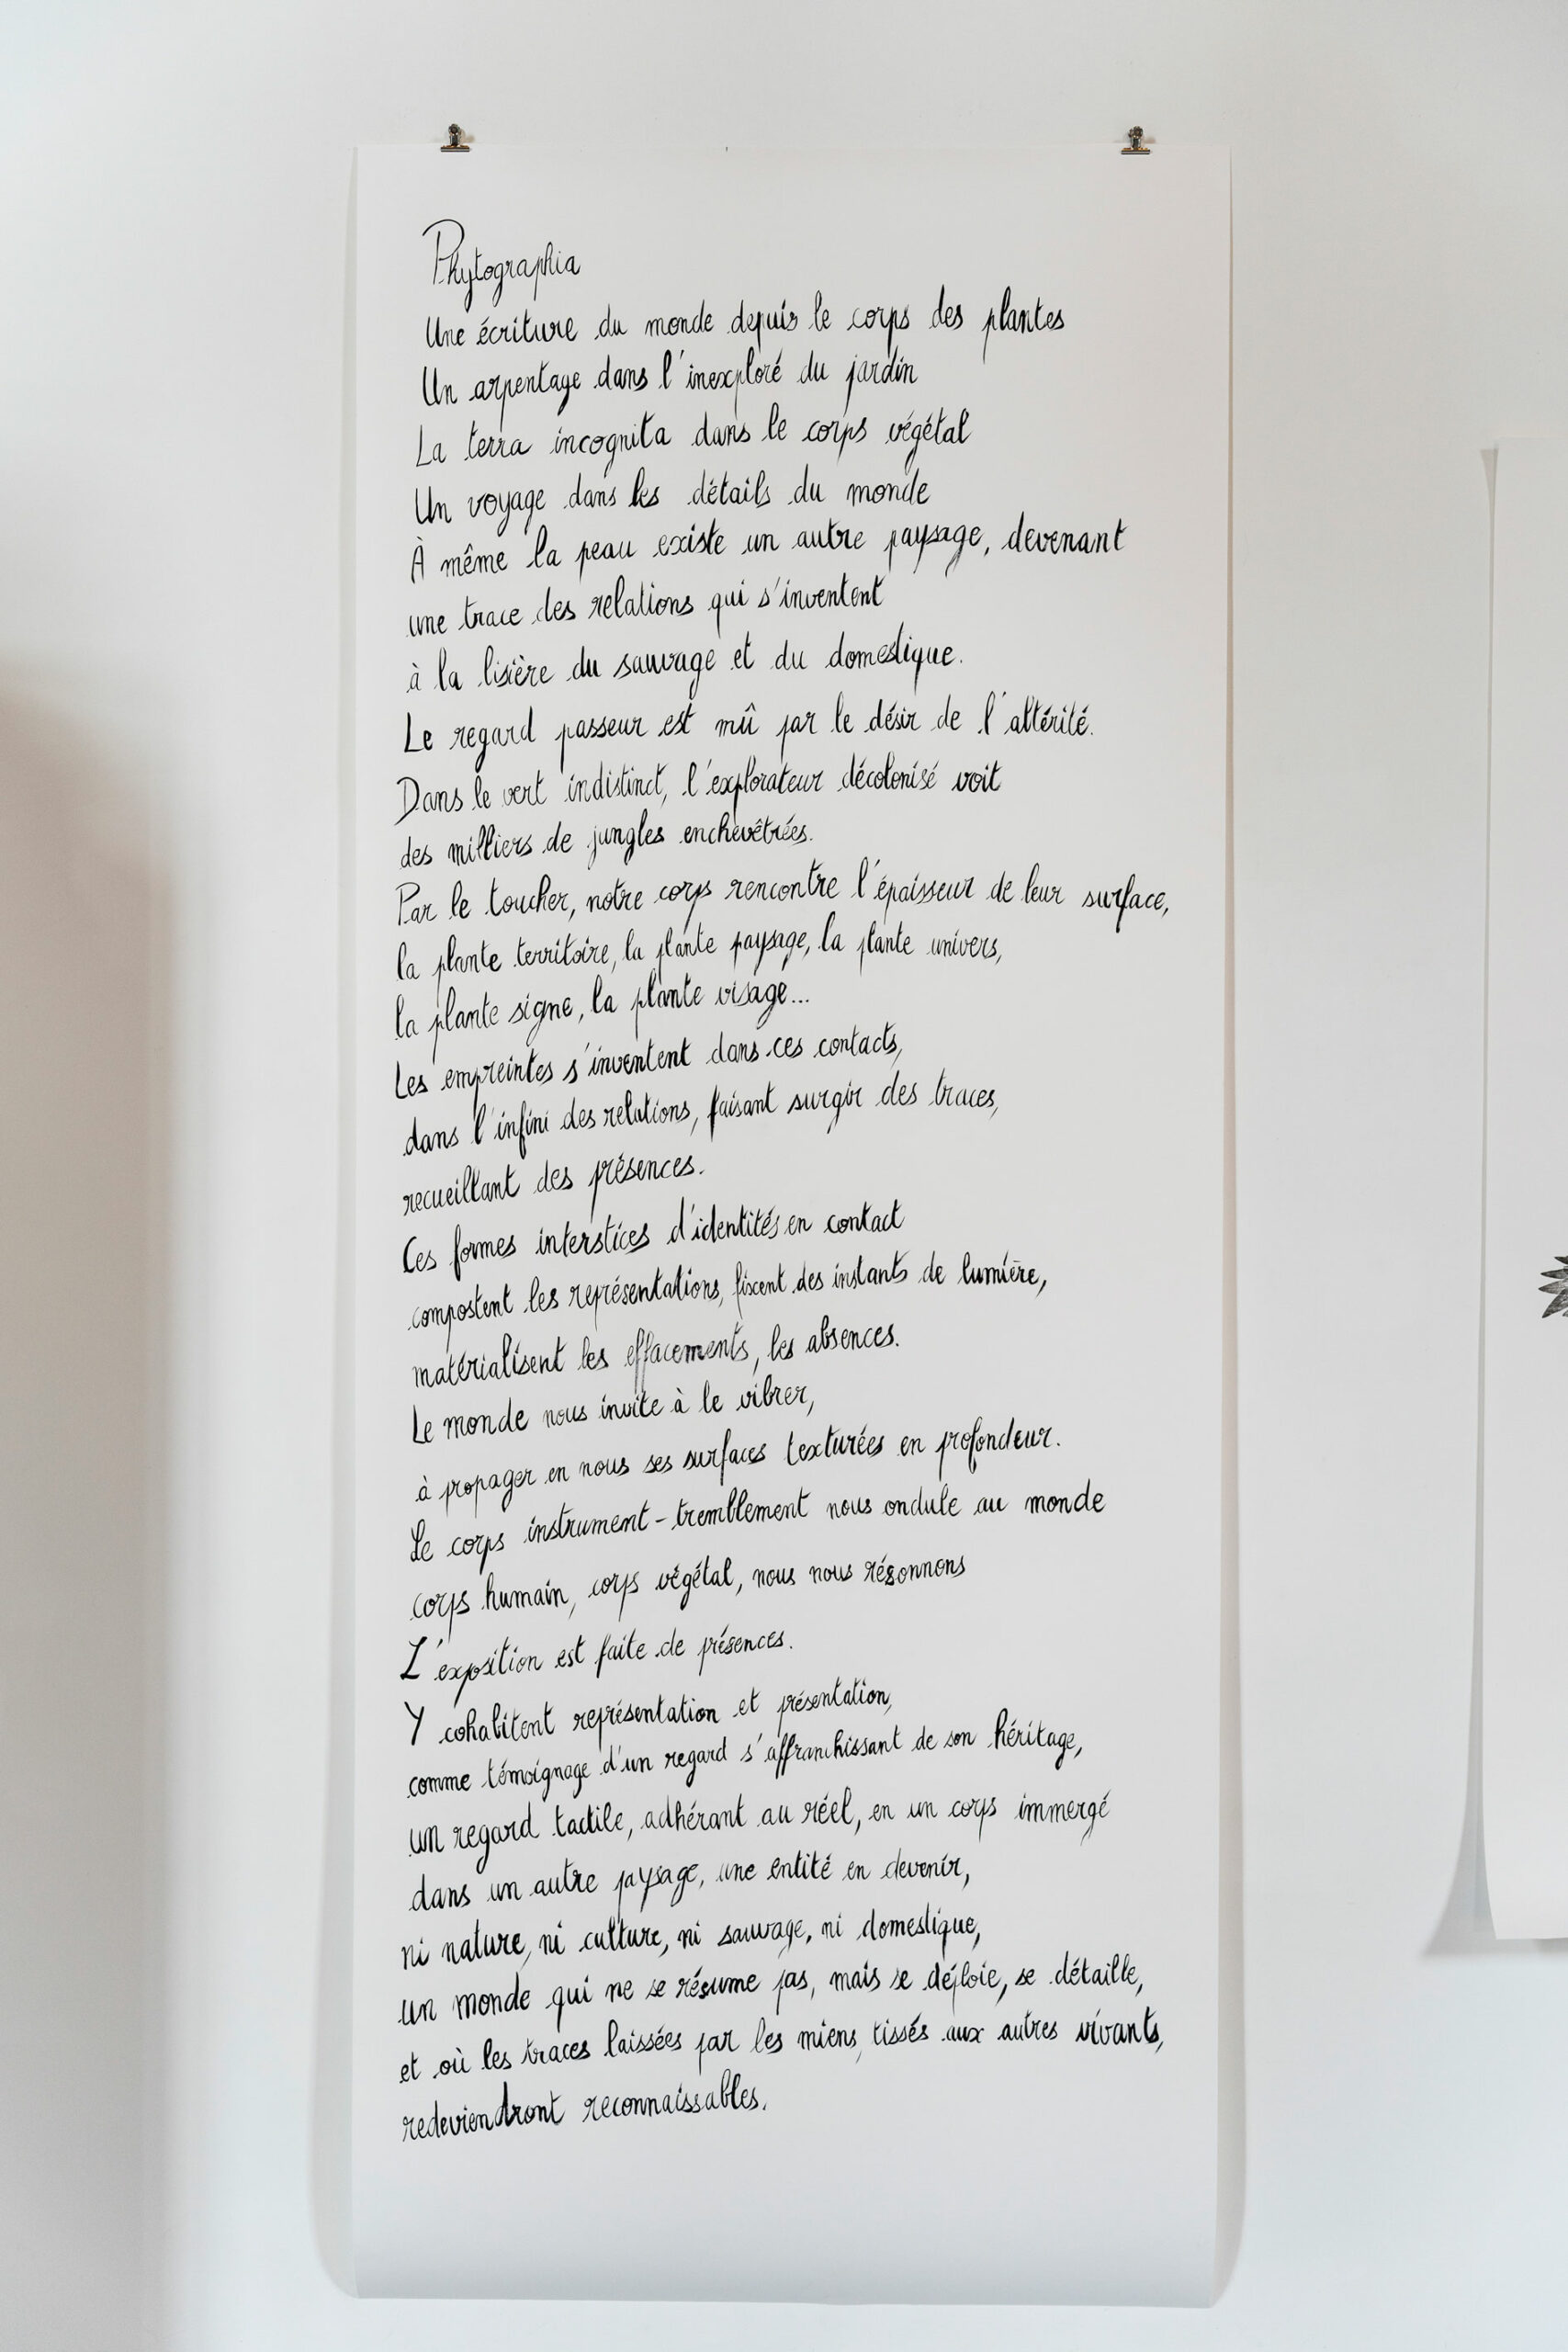 Phytographia
Une écriture du monde depuis le corps des plantes
Un arpentage dans l'inexploré du jardin
La terra incognita dans le corps végétal
Un voyage dans les détails du monde
À même la peau existe un autre paysage, devenant
une trace des relations qui s'inventent
à la lisière du sauvage et du domestique.
Le regard passeur est mû par le désir de l'altérité.
Dans le vert indistinct, l'explorateur décolonisé voit
des milliers de jungles enchevêtrées.
Par le toucher, notre corps rencontre l'épaisseur de leur surface,
la plante territoire, la plante paysage, la plante univers,
la plante signe, la plante visage...
Les empreintes s'inventent dans ces contacts,
dans l'infini des relations, faisant surgir des traces,
recueillant des présences.
Ces formes interstices d'identités en contact
compostent les représentations, fixent des instants de lumière,
matérialisent les effacements, les absences.
Le monde nous invite à le vibrer,
à propager en nous ses surfaces texturées en profondeur.
Le corps instrument-tremblement nous ondule au monde
corps humain, corps végétal, nous nous résonnons
L'exposition est faite de présences.
Y cohabitent représentation et présentation,
comme témoignage d'un regard s'affranchissant de son héritage,
un regard tactile, adhérant au réel, en un corps immergé
dans un autre paysage, une entité en devenir,
ni nature, ni culture, ni sauvage, ni domestique,
un monde qui ne se résume pas, mais se déploie, se détaille,
et où les traces laissées par les miens, tissés aux autres vivants,
redeviendront reconnaissables.